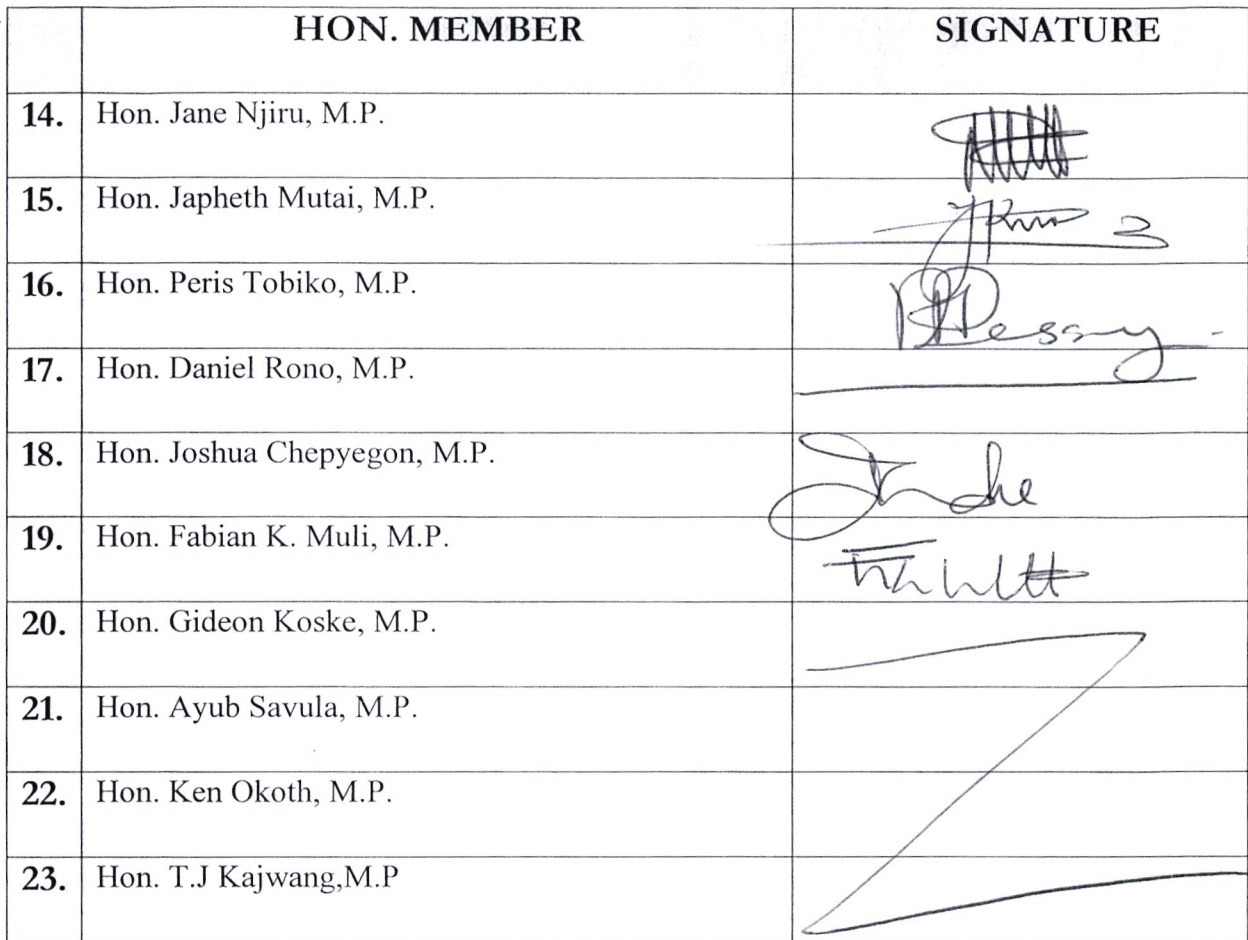 HON. MEMBER SIGNATURE
14. Hon. Jane Njiru, M.P.
15. Hon. Japheth Mutai, M.P.
16. Hon. Peris Tobiko, M.P.
17. Hon. Daniel Rono, M.P.
18. Hon. Joshua Chepyegon, M.P.
19. Hon. Fabian K. Muli, M.P.
20. Hon. Gideon Koske, M.P.
21. Hon. Ayub Savula, M.P.
22. Hon. Ken Okoth, M.P.
23. Hon. T.J Kajwang,M.P